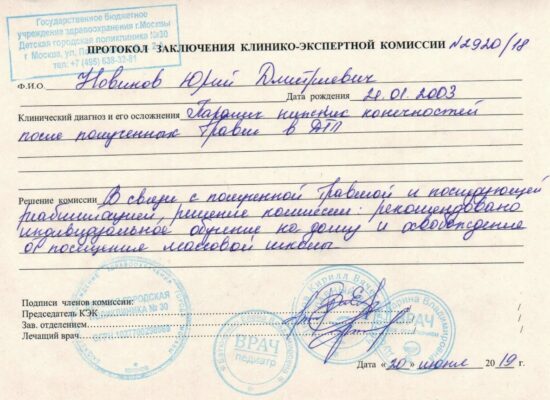 Государственное бюджетное
учреждение здравоохранения г.Москвы
Детская городская поликлиника №30
г. Москва, ул.
тел: +7 (495) 638-32-81
ПРОТОКОЛ ЗАКЛЮЧЕНИЯ КЛИНИКО-ЭКСПЕРТНОЙ КОМИССИИ №2920/18
Ф.И.О. Новиков Юрий Дмитриевич
Дата рождения 21.01.2003
Клинический диагноз и его осложнения Паралич нижних конечностей
после полученных травм в ДТП
Решение комиссии В связи с полученной травмой и последующей
реабилитацией, решение комиссии: рекомендовано
индивидуальное обучение на дому и освобождение
от посещения массовой школы
Подписи членов комиссии:
Председатель КЭК
Зав. отделением
Лечащий врач
ГОРОДСКАЯ
ПОЛИКЛИНИКА № 30
ВРАЧ
педиатр
Кирилл
ВРАЧ
Марина Владимировна
Дата «20» июня 2019 г.